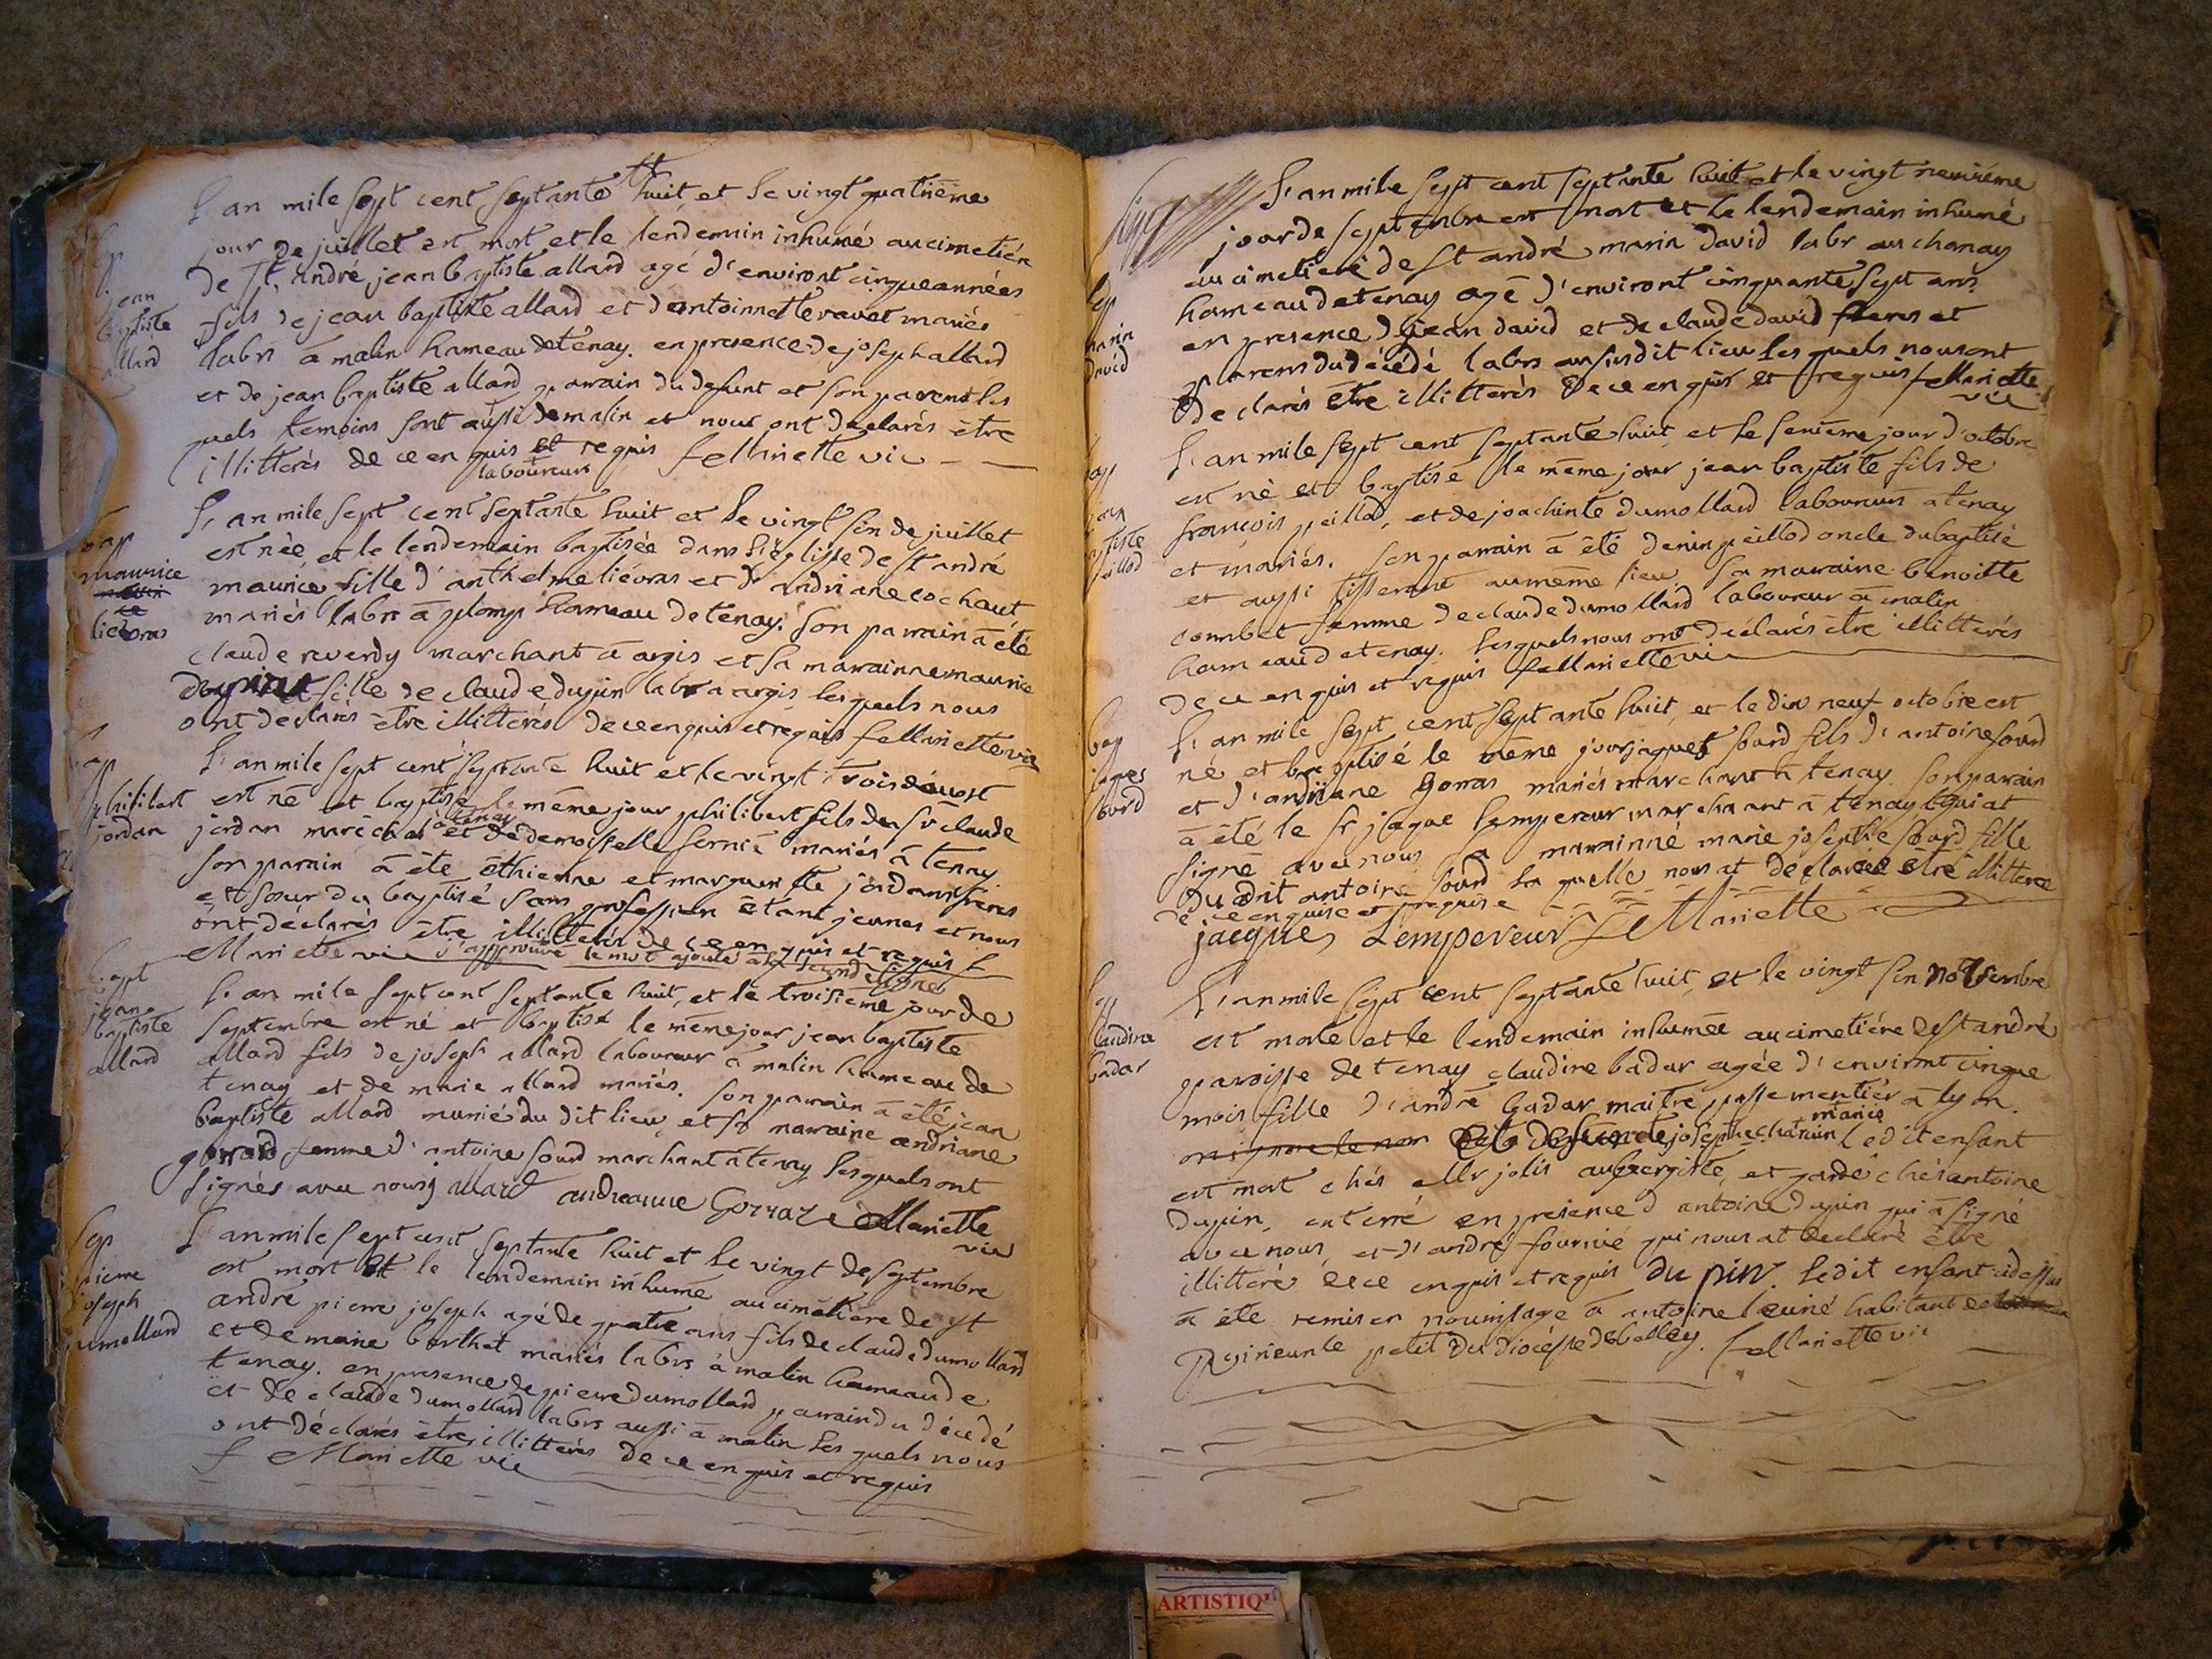 L'an mile sept cent septante huit et le vingt quatrieme
jour de juillet est mort et le lendemain inhumé au cimetiére
de St. andré jean baptiste allard agé d'environt cinque années
fils de jean baptiste allard et dantoinette ravet mariés
labrs a malin hameau de ténay. en presence de joseph allard
et de jean baptiste allard parrain du defunt et son parent les
quels temoins sont aussi de malin et nous ont declarés être
illitterés de ce en quis et requis f Mariette vic
laboureurs
Sep
jean
baptiste
allard
L'an mile sept cent septante huit et le vingt sin de juillet
est née et le lendemain baptisée dans l'églisse de St andré
maurice fille d'anthelme liévras et d'andriane cochaut
mariés labrs à plomp hameau de tenay. son parrain à été
claude reverdy marchant a argis et sa marrainne maurice
dupin fille de claude dupin labr a argis les quels nous
ont declarés être illitterés de ce en quis et requis f Mariette vic
bap
maurice
lievras
L'an mile sept cent septante huit et le vingt trois d'aust
est né et baptisé le même jour philibert fils du sr claude
à tenay
jordan maréchal et de demoisselle fernié mariés á tenay
son parrain à éte éthienne et marguerite jordans freres
et soeur du baptisé sans profession étant jeunes et nous
ont déclarés être illitterés de ce en quis et requis f
Mariette vic j'approuve le mot ajouté à la seconde ligne
bap
philibert
jordan
L'an mile sept cent septante huit, et le troisieme jour de
septembre est né et baptisé le même jour jean baptiste
allard fils de joseph allard laboureur à malin hameau de
tenay et de marie allard mariés. son parrain à été jean
baptiste allard munié du dit lieu, et sa marraine andriane
gorrard femme d'antoine sourd marchant á tenay lesquels ont
signés avec nous j allard andreanne Gorraz f Mariette
vic
bapt
jean
baptiste
allard
L'an mile sept cent septante huit et le vingt de septembre
est mort et le lendemain inhumé au cimetière de St
andré pierre joseph agé de quatre ans fils de claude dumollard
et de marie berthet mariés labrs à malin hameau de
tenay. en presence de pierre dumollard parrain du décedé
et de claude dumollard labrs aussi à malin les quels nous
ont déclarés être illitterés de ce en quis et requis
f Mariette vic
Sep
pierre
joseph
dumollard
L'an mile sept cent septante huit et le vingt neuviéme
jour de septembre est mort et le lendemain inhumé
au cimetiere de St andré marin david labr au chanay
hameau de tenay agé d'environt cinquante sept ans
en presence de jean david et de claude david freres et
parens du décédé labrs au susdit lieu les quels nous ont
declarés être illitterés de ce en quis et requis f Mariette
vic
Sep
marin
david
L'an mile sept cent septante huit et le sesième jour d'octobre
est né et baptisé le même jour jean baptiste fils de
francois peillod, et de joachinte dumollard laboureurs a tenay
et mariés. son parrain à été denin peillod oncle du baptisé
et aussi tisserant au même lieu sa marraine benoitte
combet femme de claude dumollard laboureur à malin
hameau de tenay. les quels nous ont déclarés être illitterés
de ce en quis et requis f Mariette vic
bap
jean
baptiste
peillod
L'an mile sept cent septante huit, et le dix neuf octobre est
né et baptisé le même jour jaques sourd fils d'antoine sourd
et d'andriane Gorras mariés marchant à tenay son parrain
à été le sr jaque lempereur marchaant à tenay qui at
signé avec nous sa marrainne marie josephe sourd fille
du dit antoine sourd la quelle nous at declarée être illiterée
de ce enquise et requise
jacques Lempereur f Mariette
bap
jaques
sourd
L'an mile sept cent septante huit, et le vingt sin novembre
est morte et le lendemain inhumée au cimetiére de St andré
paroisse de tenay claudine badar agée d'environt cinque
mois fille d'andré badar maitre passementiér à lyon.
mariés
et de josephe charvin ledit enfant
est mort chés Mr jolis aubergiste, et gardé chés antoine
dupin, enterré en presence d'antoine dupin qui à signé
avec nous, et d'andré fournié qui nous at declaré être
illitteré de ce enquis et requis Du pin. Ledit enfant cidessus
à été remis en nourissage à antoine leuiné habitant
Rosirieu le petit du diocésse de belley. f Mariette vic
Sep
claudine
badar
ARTISTIQU